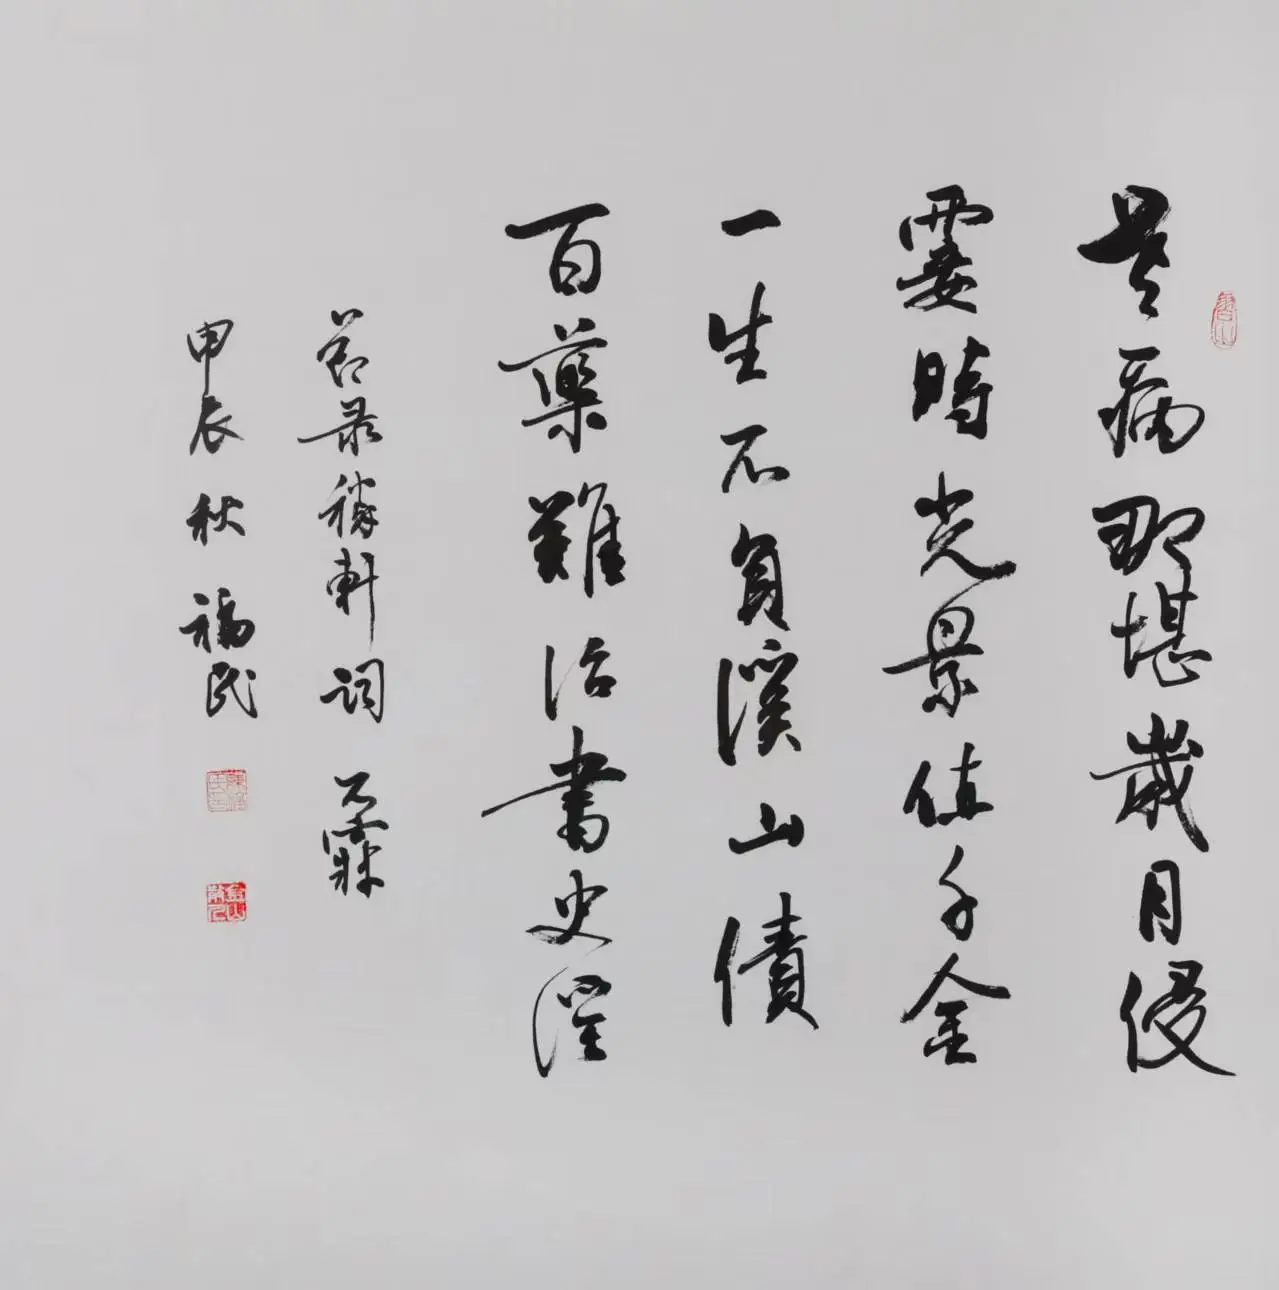 老病那堪歲月侵
霎時光景值千金
一生不負溪山債
百藥難治書史淫
節录稼軒詞 不寐
甲辰秋 福民